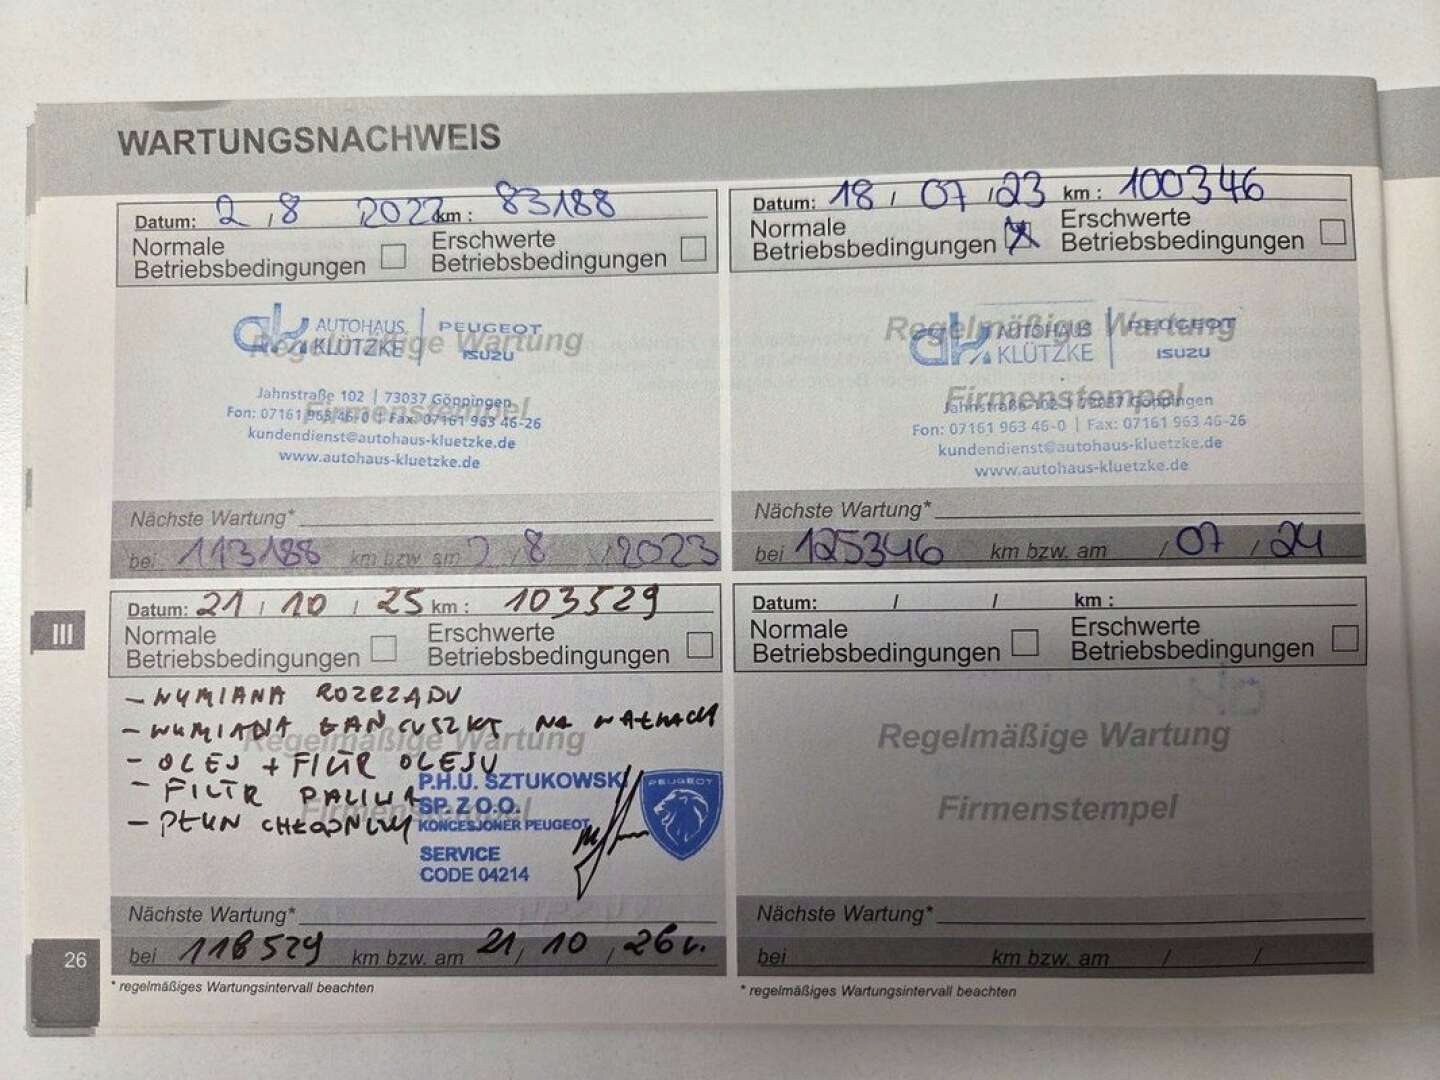 WARTUNGSNACHWEIS
Datum: 2 / 8 2022 km : 83188
Normale Betriebsbedingungen
Erschwerte Betriebsbedingungen
Regelmäßige Wartung
Firmenstempel
ak AUTOHAUS KLÜTZKE | PEUGEOT ISUZU
Jahnstraße 102 | 73037 Göppingen
Fon: 07161 963 46-0 | Fax: 07161 963 46-26
kundendienst@autohaus-kluetzke.de
www.autohaus-kluetzke.de
Nächste Wartung*
bei 113188 km bzw. am 2 / 8 / 2023
Datum: 18 / 07 / 23 km : 100346
Normale Betriebsbedingungen X
Erschwerte Betriebsbedingungen
Regelmäßige Wartung
Firmenstempel
ak AUTOHAUS KLÜTZKE | PEUGEOT ISUZU
Jahnstraße 102 | 73037 Göppingen
Fon: 07161 963 46-0 | Fax: 07161 963 46-26
kundendienst@autohaus-kluetzke.de
www.autohaus-kluetzke.de
Nächste Wartung*
bei 125346 km bzw. am / 07 / 24
III
Datum: 21 / 10 / 25 km : 103529
Normale Betriebsbedingungen
Erschwerte Betriebsbedingungen
Regelmäßige Wartung
Firmenstempel
- WYMIANA ROZRZĄDU
- WYMIANA ŁAŃCUSZKA NA WAŁKACH
- OLEJ + FILTR OLEJU
- FILTR PALIWA
- PŁYN CHŁODNICZY
P.H.U. SZTUKOWSKI
SP. Z O.O.
KONCESJONER PEUGEOT
SERVICE
CODE 04214
PEUGEOT
Nächste Wartung*
bei 118529 km bzw. am 21 / 10 / 26 r.
* regelmäßiges Wartungsintervall beachten
Datum: / / km :
Normale Betriebsbedingungen
Erschwerte Betriebsbedingungen
Regelmäßige Wartung
Firmenstempel
Nächste Wartung*
bei km bzw. am / /
* regelmäßiges Wartungsintervall beachten
26